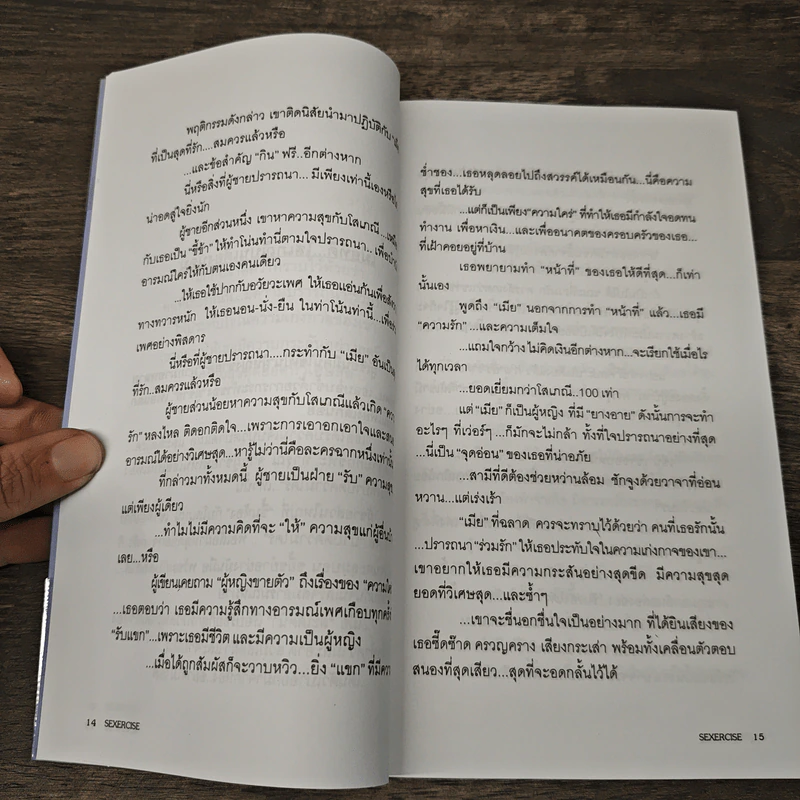 พฤติกรรมดังกล่าว เขาติดนิสัยนำมาปฏิบัติกับ
ที่เป็นสุดที่รัก....สมควรแล้วหรือ
...และข้อสำคัญ "กิน" ฟรี..อีกต่างหาก
นี่หรือสิ่งที่ผู้ชายปรารถนา... มีเพียงเท่านี้เองหรือ
น่าอดสูใจยิ่งนัก
ผู้ชายอีกส่วนหนึ่ง เขาหาความสุขกับโสเภณี...
กับเธอเป็น "ขี้ข้า" ให้ทำโน่นทำนี่ตามใจปรารถนา..
อารมณ์ใคร่ให้กับตนเองคนเดียว
...ให้เธอใช้ปากกับอวัยวะเพศ ให้เธอแอ่นก้นเพื่อ
ทางทวารหนัก ให้เธอนอน-นั่ง-ยืน ในท่าโน้นท่านี้...
เพศอย่างพิสดาร
นี่หรือที่ผู้ชายปรารถนา....กระทำกับ "เมีย" อันเป็น
ที่รัก..สมควรแล้วหรือ
ผู้ชายส่วนน้อยหาความสุขกับโสเภณีแล้วเกิด
รัก" หลงใหล ติดอกติดใจ...เพราะการเอาอกเอาใจและ
อารมณ์ได้อย่างวิเศษสุด...หารู้ไม่ว่านี่คือละครฉากหนึ่งเท่านั้น
ที่กล่าวมาทั้งหมดนี้ ผู้ชายเป็นฝ่าย "รับ" ความสุข
แต่เพียงผู้เดียว
...ทำไมไม่มีความคิดที่จะ "ให้" ความสุขแก่ผู้อื่น
เลย...หรือ
ผู้เขียนเคยถาม "ผู้หญิงขายตัว" ถึงเรื่องของ
...เธอตอบว่า เธอมีความรู้สึกทางอารมณ์เพศเกือบทุกครั้ง
"รับแขก"...เพราะเธอมีชีวิต และมีความเป็นผู้หญิง
...เมื่อได้ถูกสัมผัสก็จะวาบหวิว...ยิ่ง "แขก" ที่มี
14 SEXERCISE
ช่ำชอง...เธอหลุดลอยไปถึงสวรรค์ได้เหมือนกัน...นี่คือความ
สุขที่เธอได้รับ
...แต่ก็เป็นเพียง"ความใคร่" ที่ทำให้เธอมีกำลังใจอดทน
ทำงาน เพื่อหาเงิน...และเพื่ออนาคตของครอบครัวของเธอ...
ที่เฝ้าคอยอยู่ที่บ้าน
เธอพยายามทำ "หน้าที่" ของเธอให้ดีที่สุด...ก็เท่า
นั้นเอง
พูดถึง "เมีย" นอกจากการทำ "หน้าที่" แล้ว...เธอมี
"ความรัก" ...และความเต็มใจ
...แถมใจกว้าง ไม่คิดเงินอีกต่างหาก...จะเรียกใช้เมื่อไร
ได้ทุกเวลา
...ยอดเยี่ยมกว่าโสเภณี..100 เท่า
แต่ "เมีย" ก็เป็นผู้หญิง ที่มี "ยางอาย" ดังนั้นการจะทำ
อะไรๆ ที่เว่อร์ๆ ...ก็มักจะไม่กล้า ทั้งที่ใจปรารถนาอย่างที่สุด
...นี่เป็น "จุดอ่อน" ของเธอที่น่าอภัย
...สามีที่ดีต้องช่วยหว่านล้อม ชักจูงด้วยวาจาที่อ่อน
หวาน...แต่เร่งเร้า
"เมีย" ที่ฉลาด ควรจะทราบไว้ด้วยว่า คนที่เธอรักนั้น
...ปรารถนา "ร่วมรัก" ให้เธอประทับใจในความเก่งกาจของเขา...
เขาอยากให้เธอมีความกระสันอย่างสุดขีด มีความสุขสุด
ยอดที่วิเศษสุด...และซ้ำๆ
...เขาจะชื่นอกชื่นใจเป็นอย่างมาก ที่ได้ยินเสียงของ
เธอซี๊ดซ๊าด ครวญคราง เสียงกระเส่า พร้อมทั้งเคลื่อนตัวตอบ
สนองที่สุดเสียว...สุดที่จะอดกลั้นไว้ได้
SEXERCISE 15